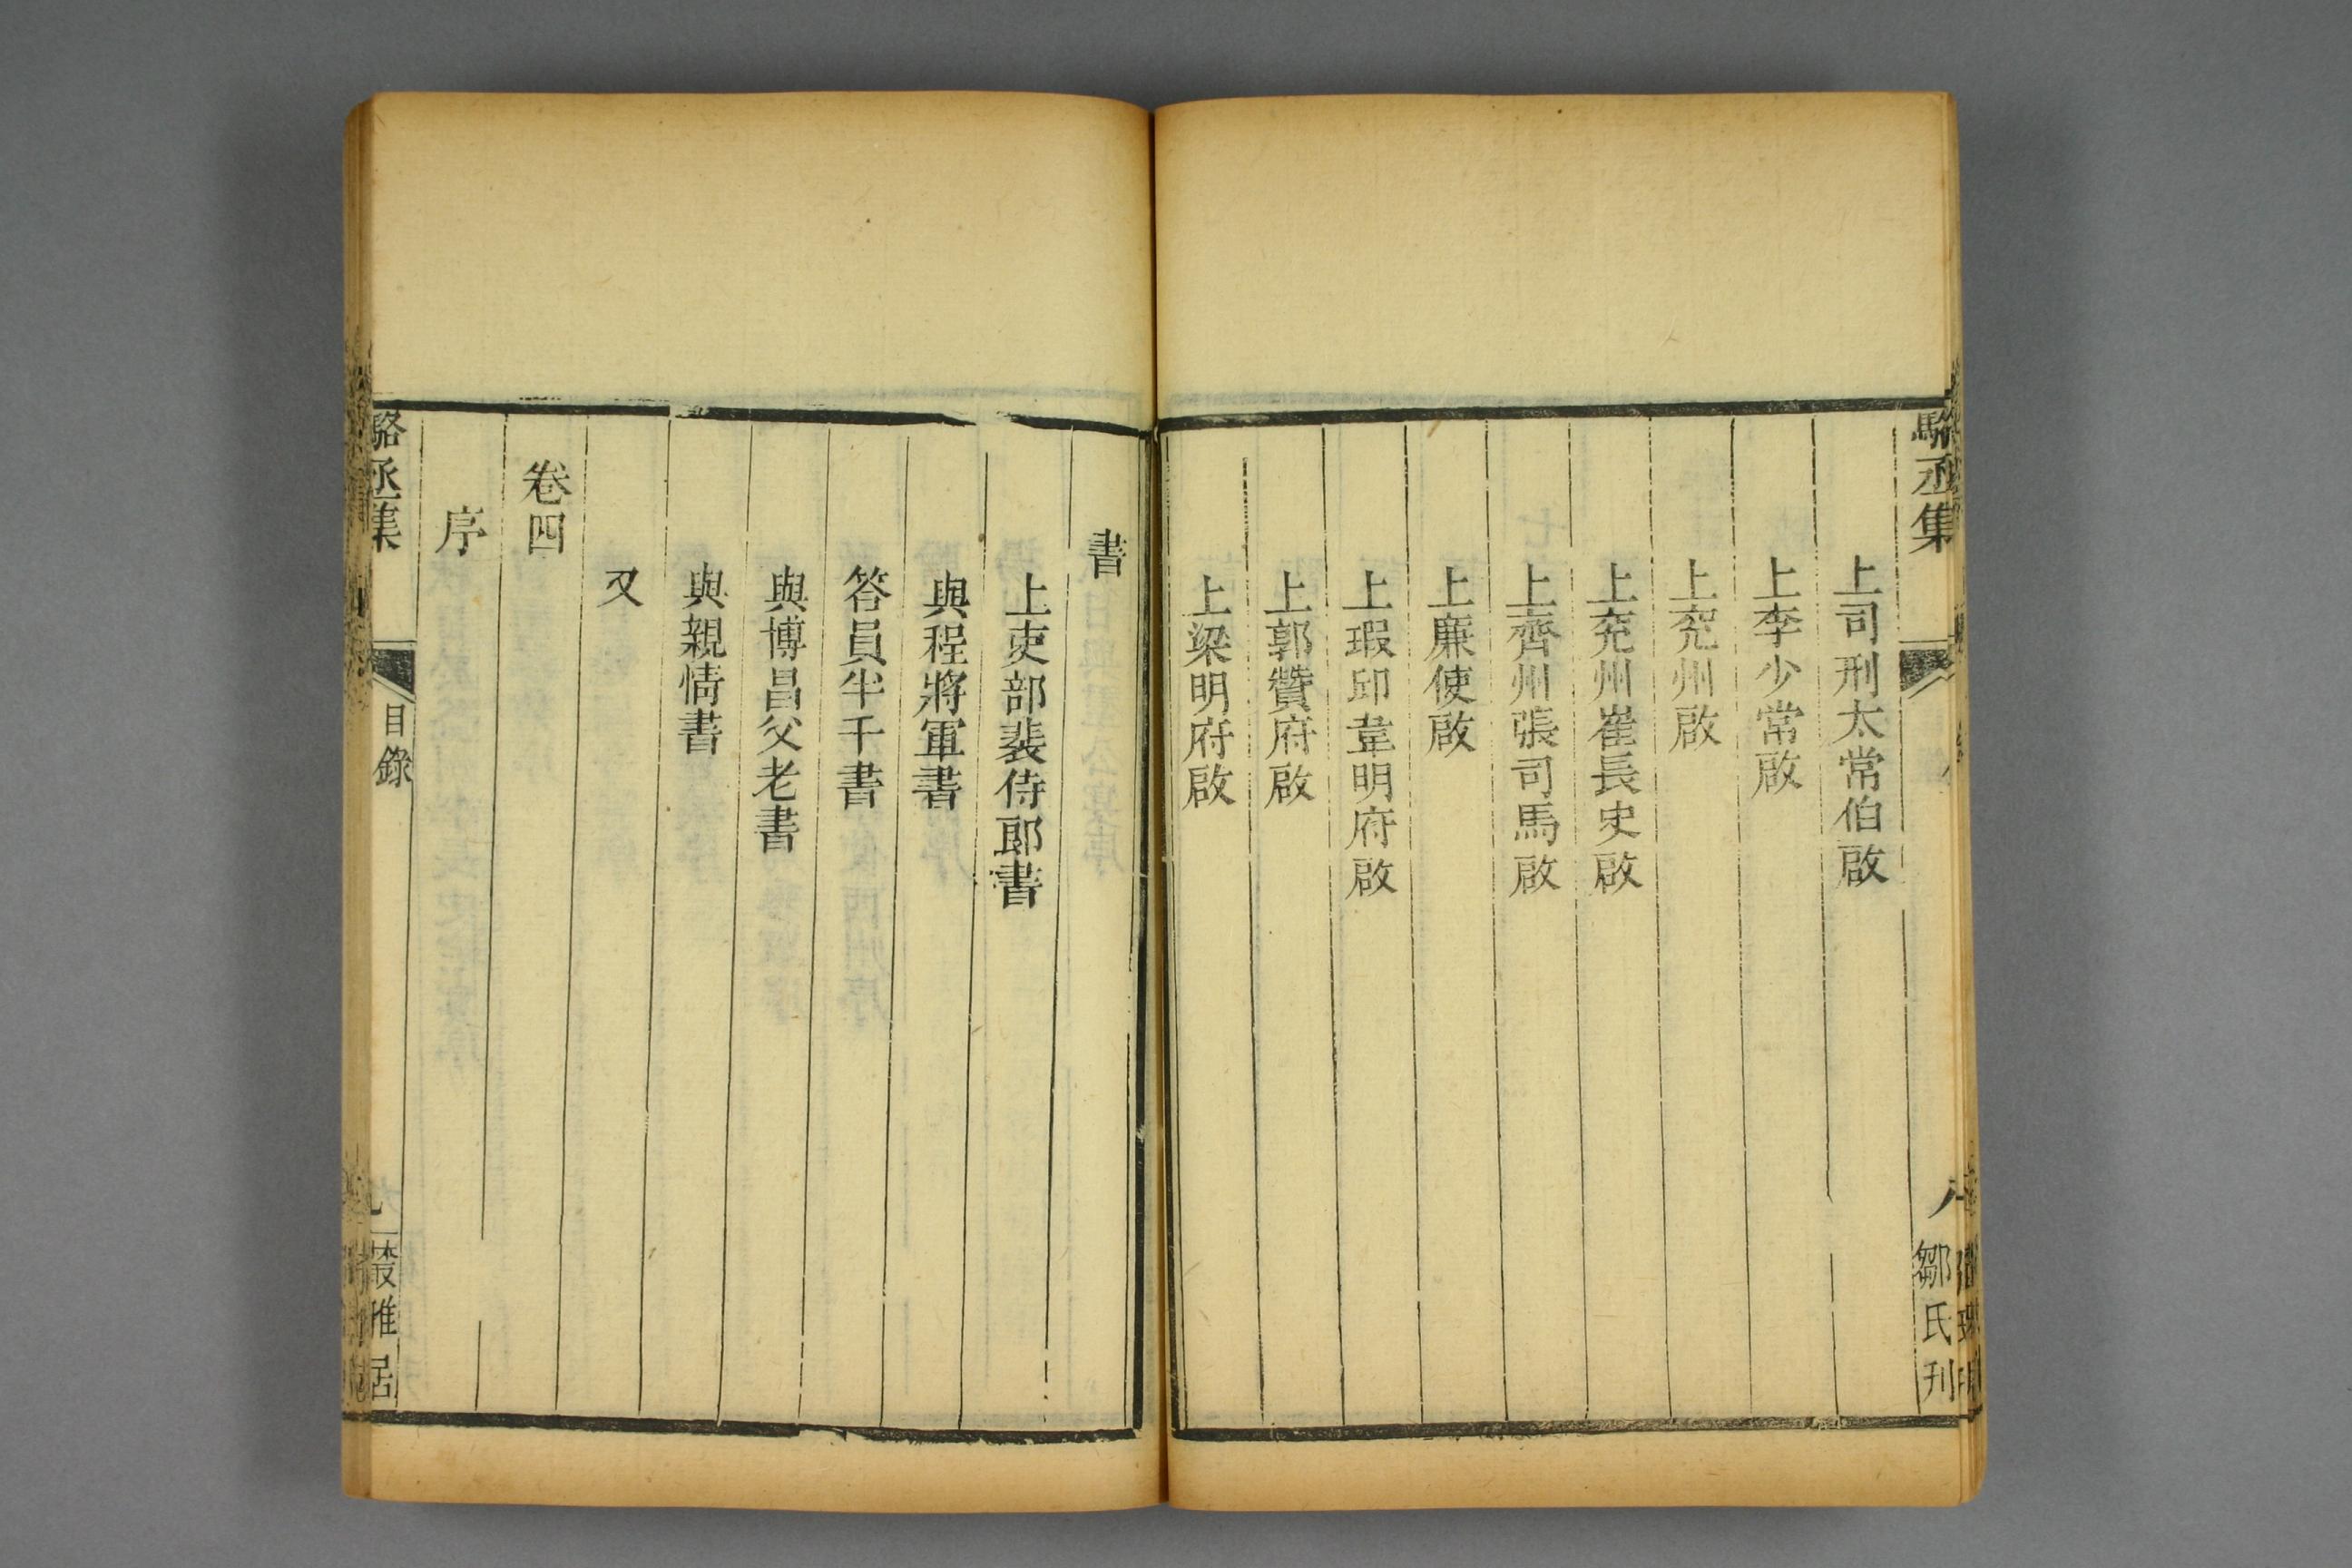 駱丞集
鄒氏刊
上司刑太常伯啟
上李少常啟
上兖州啟
上兖州崔長史啟
上齊州張司馬啟
上廉使啟
上瑕邱韋明府啟
上郭贊府啟
上梁明府啟
書
上吏部裴侍郎書
與程將軍書
答員半千書
與博昌父老書
與親情書
又
卷四
序
駱丞集
目錄
叢雅居